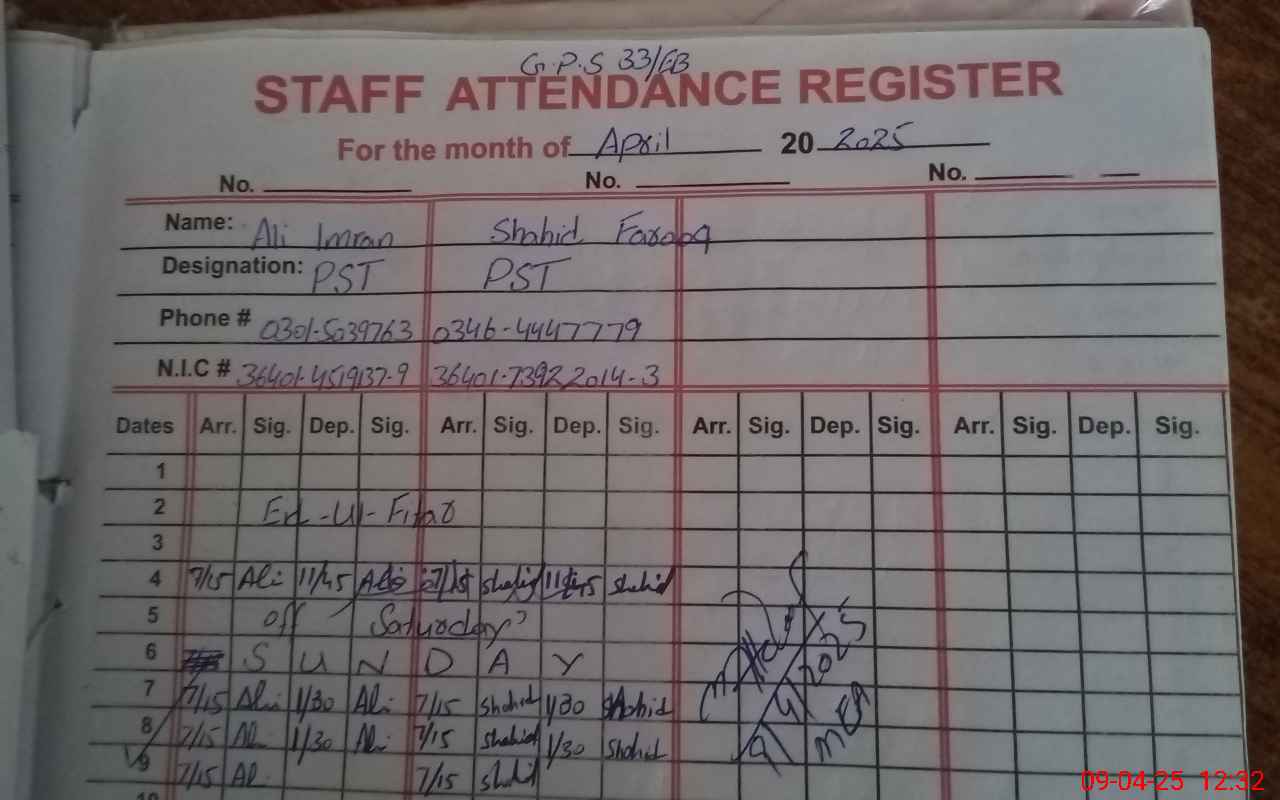 G.P.S 33/EB
STAFF ATTENDANCE REGISTER
For the month of April 20 2025
No. No. No.
Name: Ali Imran Shahid Farooq
Designation: PST PST
Phone # 0301-5039763 0346-4447779
N.I.C # 36401-4519137-9 36401-73922014-3
Dates Arr. Sig. Dep. Sig. Arr. Sig. Dep. Sig. Arr. Sig. Dep. Sig. Arr. Sig. Dep. Sig.
1
2 Eid-Ul-Fitar
3
4 7/15 Ali 11/45 Ali 7/15 Shahid 11/45 Shahid
5 off Saturday
6 S U N D A Y
7 7/15 Ali 1/30 Ali 7/15 Shahid 1/30 Shahid
8 7/15 Ali 1/30 Ali 7/15 Shahid 1/30 Shahid
9 7/15 Ali 7/15 Shahid
9/4/2025
MEA
10
09-04-25 12:32